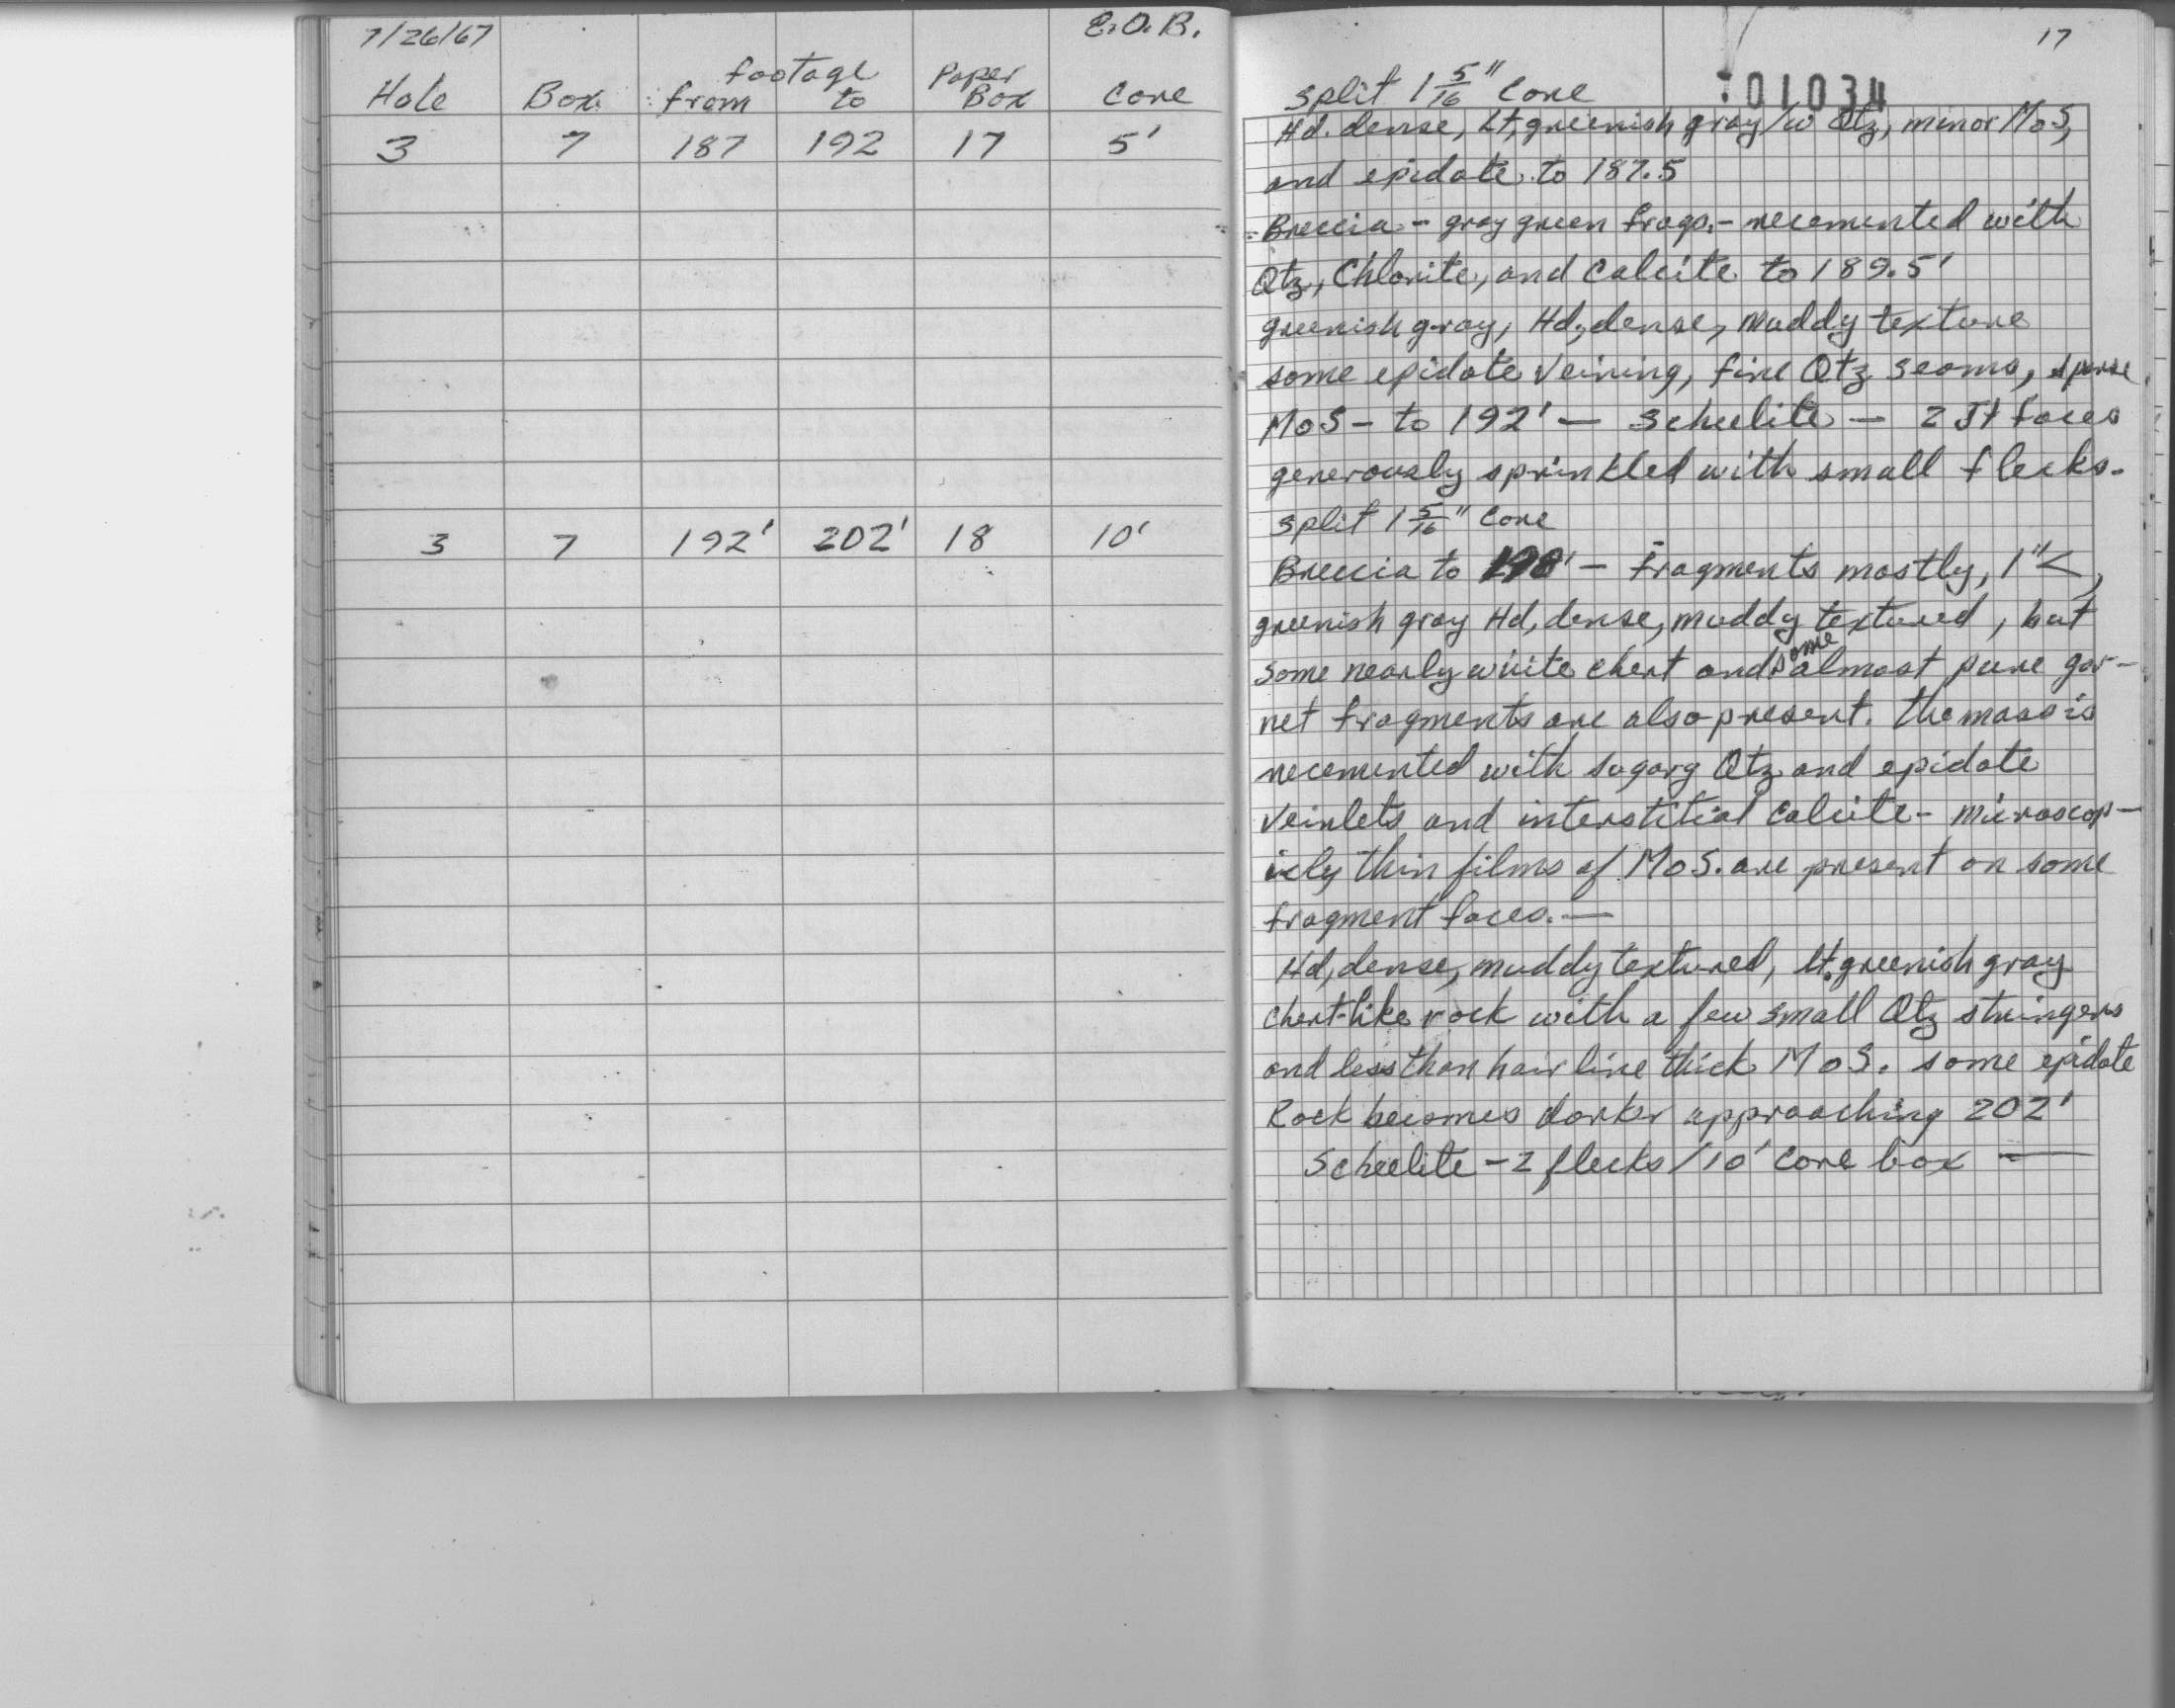 7/26/67 E.O.B.
footage Paper
Hole Box from to Box Core
3 7 187 192 17 5'
3 7 192' 202' 18 10'
17
split 1 5/16" Core
01034
Hd. dense, Lt, greenish gray /w Qtz, minor MoS,
and epidote to 187.5
Breccia - gray green frags. - recemented with
Qtz, Chlorite, and Calcite to 189.5'
greenish gray, Hd, dense, muddy texture
some epidote veining, fine Qtz seams, sparse
MoS - to 192' — Scheelite — 2 Jt faces
generously sprinkled with small flecks.
split 1 5/16" Core
Breccia to 198' - fragments mostly, 1"<,
greenish gray Hd, dense, muddy textured, but
some nearly white chert and some almost pure gar-
net fragments are also present. the mass is
recemented with sugary Qtz and epidote
veinlets and interstitial Calcite - microscop-
icly thin films of MoS. are present on some
fragment faces. —
Hd, dense, muddy textured, lt. greenish gray
chert-like rock with a few small Qtz stringers
and less than hairline thick MoS. some epidote
Rock becomes darker approaching 202'
Scheelite - 2 flecks / 10' Core box —